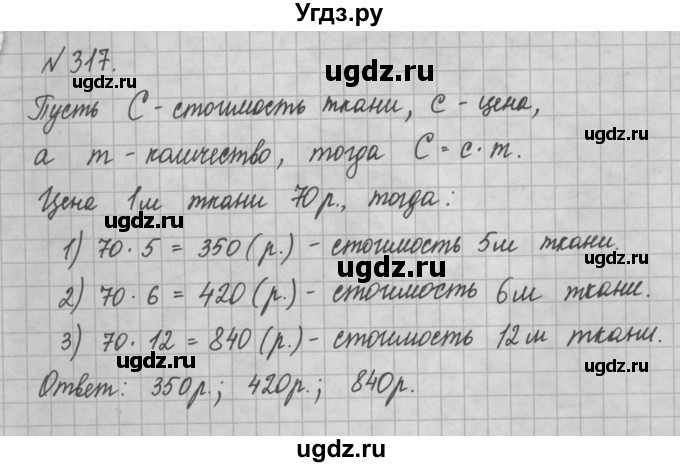 Угдз.ру
№317.
ugdz.ru
Пусть C - стоимость ткани, c - цена,
ugdz.ru
а m - количество, тогда C = c · m.
Цена 1м ткани 70р., тогда:
ugdz.ru
1) 70 · 5 = 350 (р.) - стоимость 5м ткани.
ugdz.ru
ugdz.ru
2) 70 · 6 = 420 (р.) - стоимость 6м ткани.
3) 70 · 12 = 840 (р.) - стоимость 12м ткани.
ugdz.ru
ugdz.ru
Ответ: 350р.; 420р.; 840р.
ugdz.ru